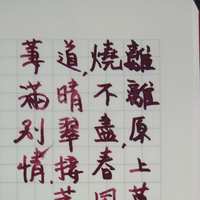 離離原上
燒不盡,春
道,晴翠接
萋滿别情,